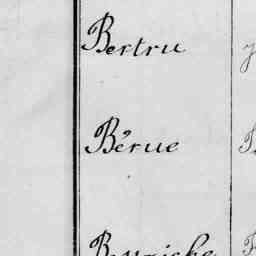 Bertru
Bérue